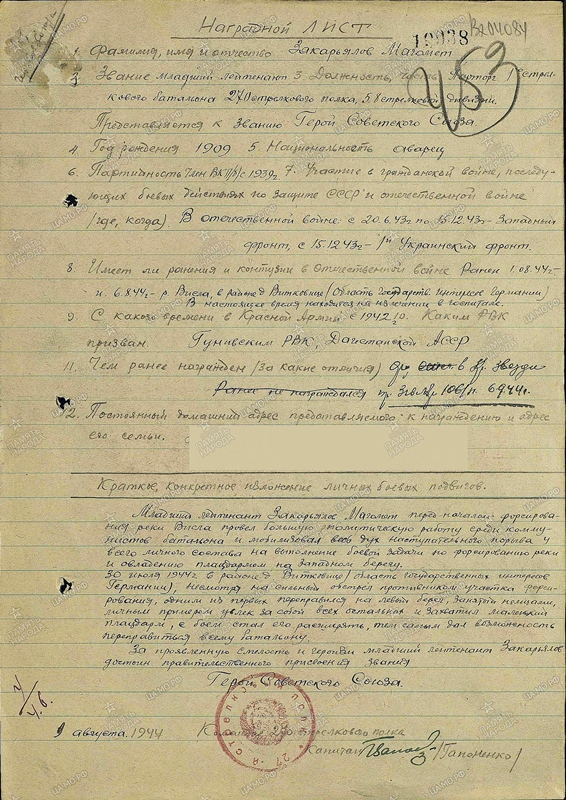 Наградной ЛИСТ
19938
В204084
453
1. Фамилия, имя и отчество Закарьялов Магомет
2. Звание младший лейтенант 3. Должность, часть Парторг 1 стрел-
кового батальона 270 стрелкового полка, 58 стрелковой дивизии.
Представляется к званию Герой Советского Союза
4. Год рождения 1909 5 Национальность аварец
6. Партийность Член ВКП/б/с 1939г 7. Участие в гражданской войне, последу-
ющих боевых действиях по защите СССР и отечественной войне
/где, когда/ В отечественной войне с 20.6.43г по 15.12.43г - Западный
фронт, с 15.12.43г - 1й Украинский фронт.
8. Имеет ли ранения и контузии в Отечественной войне Ранен 1.08.44г-
и 6.8.44г - р. Висла, в районе д Витковице /Область государств. интересов Германии/
В настоящее время находится на излечении в госпитале.
9. С какого времени в Красной Армии с 1942 10. Каким РВК
призван Гунибским РВК, Дагестанской АССР
11. Чем ранее награжден /за какие отличия/ Кр. Звезды
Ранее не награждался
12. Постоянный домашний адрес представляемого к награждению и адрес
его семьи.
Краткое, конкретное изложение личных боевых подвигов.
Младший лейтенант Закарьялов Магомет перед началом форсирова-
ния реки Висла провел большую политическую работу среди комму-
нистов батальона и мобилизовал весь дух наступательного порыва у
всего личного состава на выполнение боевой задачи по форсированию реки
и овладению плацдармом на западном берегу.
30 июля 1944г в районе д Витковице /область государственных интересов
Германии/, несмотря на сильный обстрел противником участка форси-
рования, одним из первых переправился на левый берег, занятый немцами,
личным примером увлек за собой всех остальных и захватил маленький
плацдарм, с боем стал его расширять, тем самым дал возможность
переправиться всему батальону.
За проявленную смелость и героизм младший лейтенант Закарьялов
достоин правительственного присвоения звания
Герой Советского Союза.
9 августа 1944 Командир стрелкового полка
Капитан /Гапоненко/